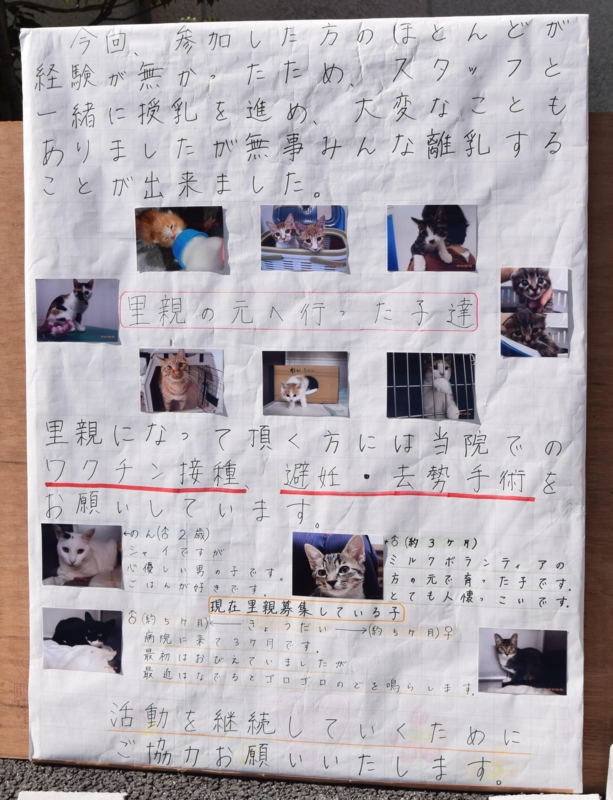 今回、参加した方のほとんどが
経験が無かったため、スタッフと
一緒に授乳を進め、大変なことも
ありましたが無事みんな離乳する
ことが出来ました。
里親の元へ行った子達
里親になって頂く方には当院での
ワクチン接種、避妊・去勢手術を
お願いしています。
←のん(♂2歳)
シャイですが
心優しい男の子です。
ごはんが好きです。
←♂(約3ヶ月)
ミルクボランティアの
方の元で育った子です。
とても人懐っこいです。
現在里親募集している子
♂(約5ヶ月)←きょうだい→(約5ヶ月)♀
病院に来て3ヶ月です。
最初はおびえていましたが
最近はなでるとゴロゴロのどを鳴らします。
活動を継続していくために
ご協力お願いいたします。